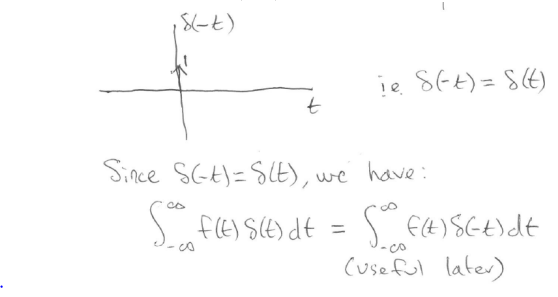 δ(-t)
1
t
i.e. δ(-t) = δ(t)
Since δ(-t) = δ(t), we have:
∫_{-∞}^{∞} f(t) δ(t) dt = ∫_{-∞}^{∞} f(t) δ(-t) dt
(useful later)